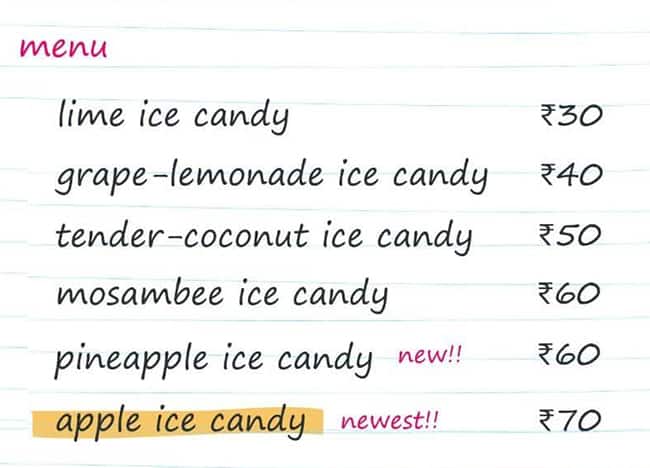 menu
lime ice candy ₹30
grape-lemonade ice candy ₹40
tender-coconut ice candy ₹50
mosambee ice candy ₹60
pineapple ice candy new!! ₹60
apple ice candy newest!! ₹70